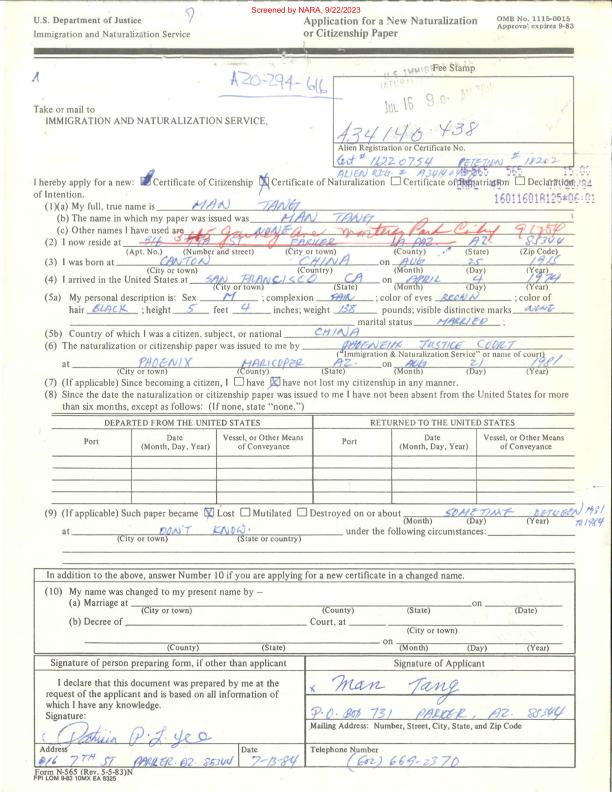 Screened by NARA, 9/22/2023
U.S. Department of Justice
Immigration and Naturalization Service
Application for a New Naturalization
or Citizenship Paper
OMB No. 1115-0015
Approval expires 9-83
A20-294-616
Fee Stamp
JUL 16
Take or mail to
IMMIGRATION AND NATURALIZATION SERVICE,
A34 140 438
Alien Registration or Certificate No.
Cert # 11220754 PETETION # 18202
ALIEN REG. #
15.00
I hereby apply for a new: Certificate of Citizenship Certificate of Naturalization Certificate of Repatriation Declaration
of Intention.
16011601R125#06:01
(1)(a) My full, true name is MAN TANG
(b) The name in which my paper was issued was MAN TANG
(c) Other names I have used are NONE
Monterey Park 91754
(2) I now reside at 816 7th ST PARKER LA PAZ AZ 85344
(Apt. No.) (Number and street) (City or town) (County) (State) (Zip Code)
(3) I was born at CANTON CHINA on AUG 25 1915
(City or town) (Country) (Month) (Day) (Year)
(4) I arrived in the United States at SAN FRANCISCO CA on APRIL 4 1974
(City or town) (State) (Month) (Day) (Year)
(5a) My personal description is: Sex M ; complexion FAIR ; color of eyes BROWN ; color of
hair BLACK ; height 5 feet 4 inches; weight 138 pounds; visible distinctive marks NONE
marital status MARRIED ;
(5b) Country of which I was a citizen, subject, or national CHINA
(6) The naturalization or citizenship paper was issued to me by PHOENEIX JUSTICE COURT
("Immigration & Naturalization Service" or name of court)
at PHOENIX MARICOPER AZ. on AUG 21 1981
(City or town) (County) (State) (Month) (Day) (Year)
(7) (If applicable) Since becoming a citizen, I have have not lost my citizenship in any manner.
(8) Since the date the naturalization or citizenship paper was issued to me I have not been absent from the United States for more
than six months, except as follows: (If none, state "none.")
DEPARTED FROM THE UNITED STATES RETURNED TO THE UNITED STATES
Port Date (Month, Day, Year) Vessel, or Other Means of Conveyance Port Date (Month, Day, Year) Vessel, or Other Means of Conveyance
(9) (If applicable) Such paper became Lost Mutilated Destroyed on or about SOMETIME BETWEEN 1981 TO 1984
(Month) (Day) (Year)
at DON'T KNOW. under the following circumstances:
(City or town) (State or country)
In addition to the above, answer Number 10 if you are applying for a new certificate in a changed name.
(10) My name was changed to my present name by —
(a) Marriage at on
(City or town) (County) (State) (Date)
(b) Decree of Court, at
(City or town)
on
(County) (State) (Month) (Day) (Year)
Signature of person preparing form, if other than applicant
Signature of Applicant
I declare that this document was prepared by me at the
request of the applicant and is based on all information of
which I have any knowledge.
Signature:
Patricia P. L. Yee
x Man Tang
P.O. BOX 731 PARKER, AZ. 85344
Mailing Address: Number, Street, City, State, and Zip Code
Address Date
816 7TH ST PARKER. AZ. 85344 7-13-84
Telephone Number
(602) 669-2370
Form N-565 (Rev. 5-5-83)N
FPI LOM 9-83 10MX EA 6325